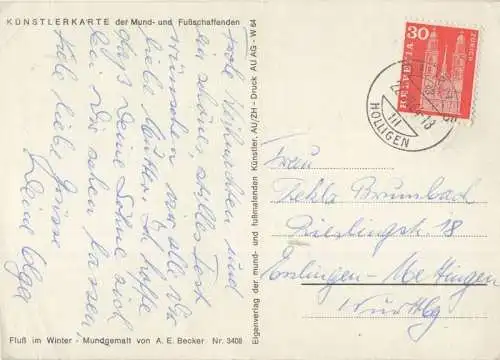 KÜNSTLERKARTE der Mund- und Fußschaffenden
Frohe Weihnachten und
ein schönes, stilles Fest
wünschen wir alle Dir
liebe Mutter. Ich hoffe
dass Deine Söhne sich
bei Dir sehen lassen,
Viele liebe Grüsse
Deine Olga
Fluß im Winter - Mundgemalt von A. E. Becker Nr. 3408
Eigenverlag der mund- und fußmalenden Künstler, AU/ZH - Druck AU AG - W 64
30
HELVETIA
ZUERICH
HOLLIGEN
Frau
Thekla Brumbad
Rieslingstr. 18
Esslingen-Mettingen
Württbg